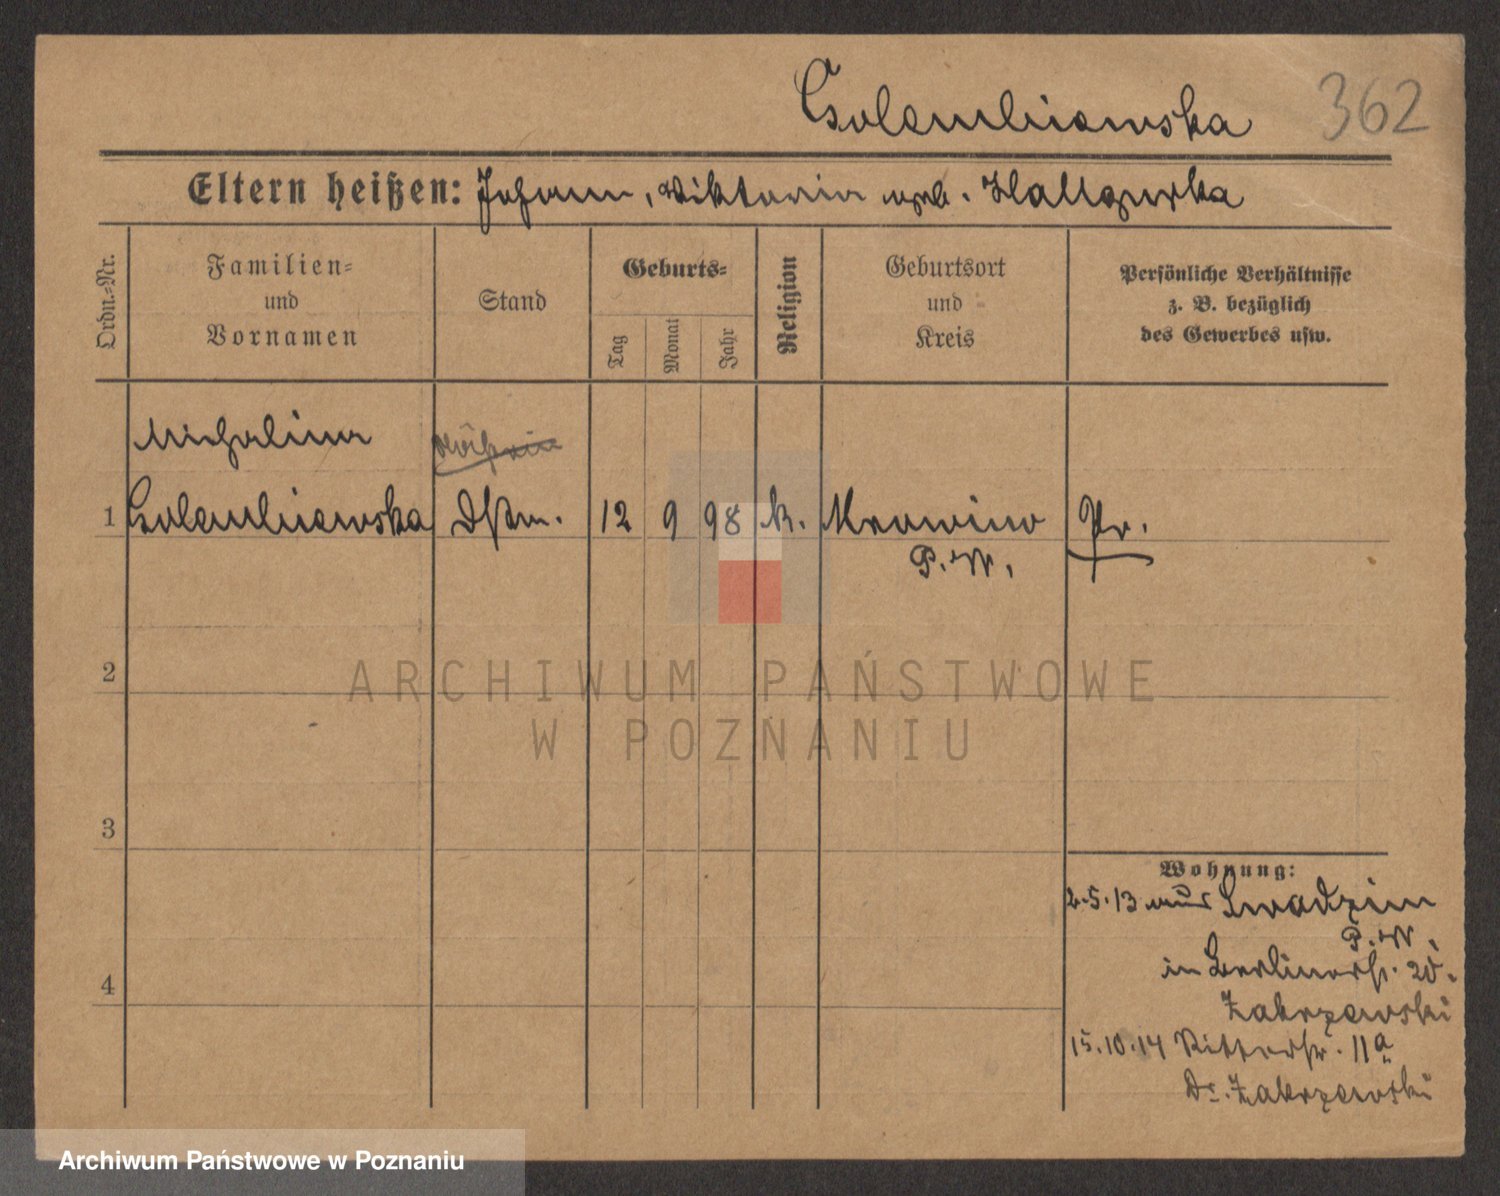 Golembiewska 362
Eltern heißen: Johann, Viktoria geb.
Ordn.-Nr.
Familien-
und
Vornamen
Stand
Geburts-
Tag
Monat
Jahr
Religion
Geburtsort
und
Kreis
Persönliche Verhältnisse
z. B. bezüglich
des Gewerbes usw.
Michalina
1 Golembiewska Dstm. 12 9 98 k. Mrowino Pr.
P. W.
2
ARCHIWUM PAŃSTWOWE
W POZNANIU
3
Wohnung:
2.5.13 aus Swadzim
P. W.
4
in Berlinerstr. 20.
Zakrzewski
15.10.14 Ritterstr. 11a
Dr. Zakrzewski
Archiwum Państwowe w Poznaniu